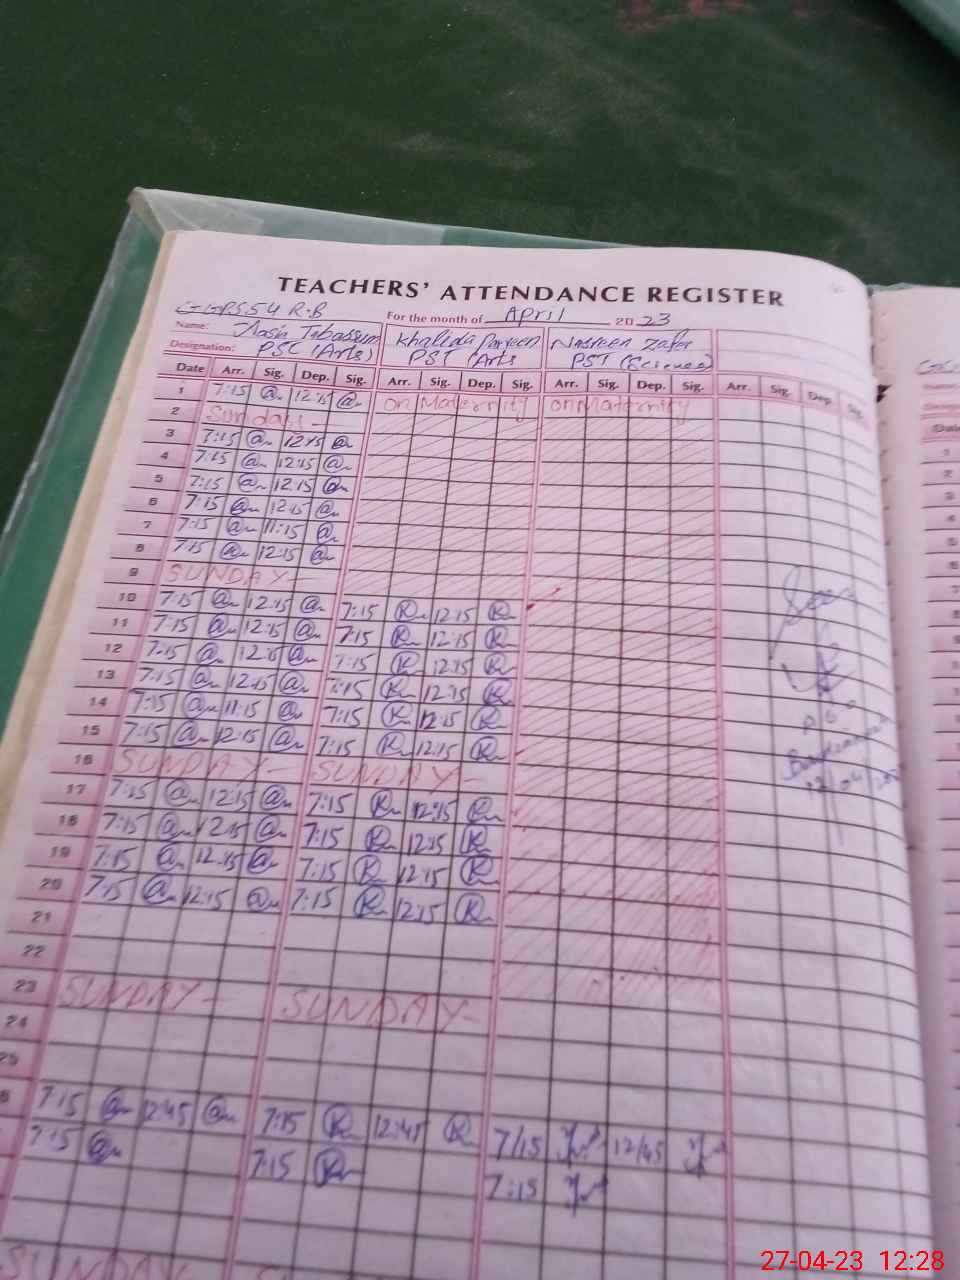 TEACHERS' ATTENDANCE REGISTER
GGPS.54 R.B For the month of April 2023
Name: Tabassum Khalida Parveen Nasreen Zafar
Designation: (Arts) PST (Arts PST (Science)
Date Arr. Sig. Dep. Sig. Arr. Sig. Dep. Sig. Arr. Sig. Dep. Sig. Arr. Sig. Dep. Sig.
1 7:15 12:15 on Maternity on Maternity
2 Sunday
3 7:15 12:15
4 7:15 12:15
5 7:15 12:15
6 7:15 12:15
7 7:15 11:15
8 7:15 12:15
9 SUNDAY
10 7:15 12:15 7:15 12:15
11 7:15 12:15 7:15 12:15
12 7:15 12:15 7:15 12:15
13 7:15 12:15 7:15 12:15
14 7:15 11:15 7:15 12:15
15 7:15 12:15 7:15 12:15
16 SUNDAY SUNDAY
17 7:15 12:15 7:15 12:15
18 7:15 12:15 7:15 12:15
19 7:15 12:15 7:15 12:15
20 7:15 12:15 7:15 12:15
21
22
23 SUNDAY SUNDAY
24
25
7:15 12:45 7:15 12:45 7/15 12/45
7:15 7:15 7:15
SUNDAY
Seen
27-04-23 12:28